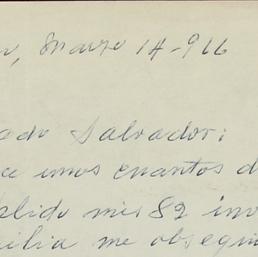 Marzo 14-916
ado Salvador:
ce unos cuantos d
plido mis 82 inv
ilia me obsequi